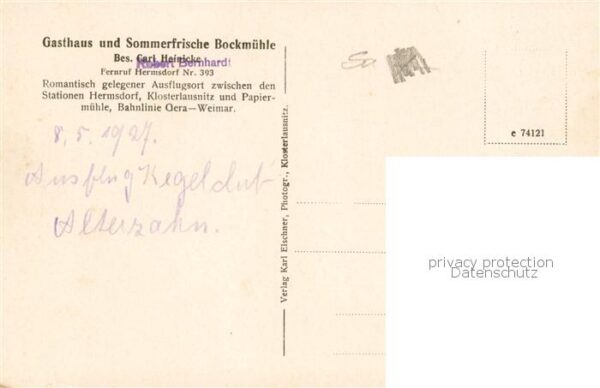 Gasthaus und Sommerfrische Bockmühle
Bes. Carl Heinicke
Robert Bernhardt
Fernruf Hermsdorf Nr. 393
Romantisch gelegener Ausflugsort zwischen den
Stationen Hermsdorf, Klosterlausnitz und Papier-
mühle, Bahnlinie Gera—Weimar.
8. 5. 1927.
Ausflug Kegelclub
Alterzahn.
Verlag Karl Elschner, Photogr., Klosterlausnitz.
Sa
e 74121
privacy protection
Datenschutz